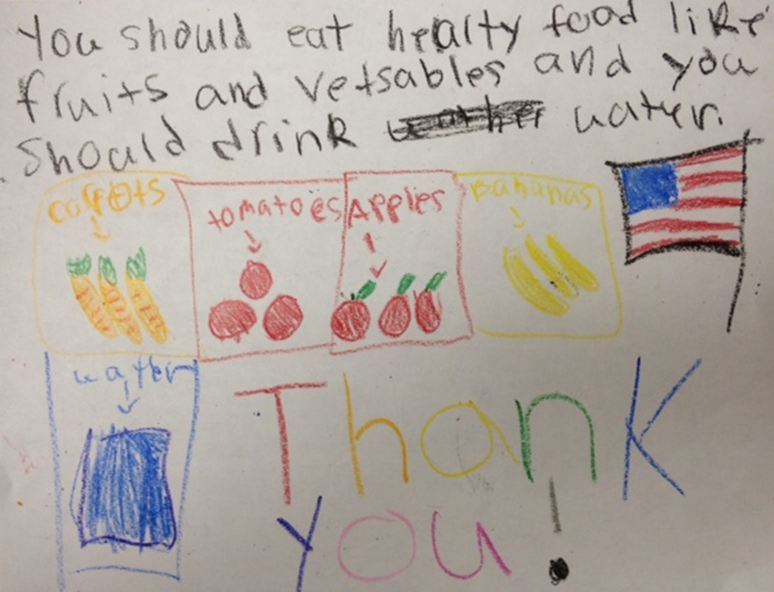 You should eat healty food like
fruits and vetsables and you
should drink water.
carrots
tomatoes
Apples
Bananas
water
Thank
you!